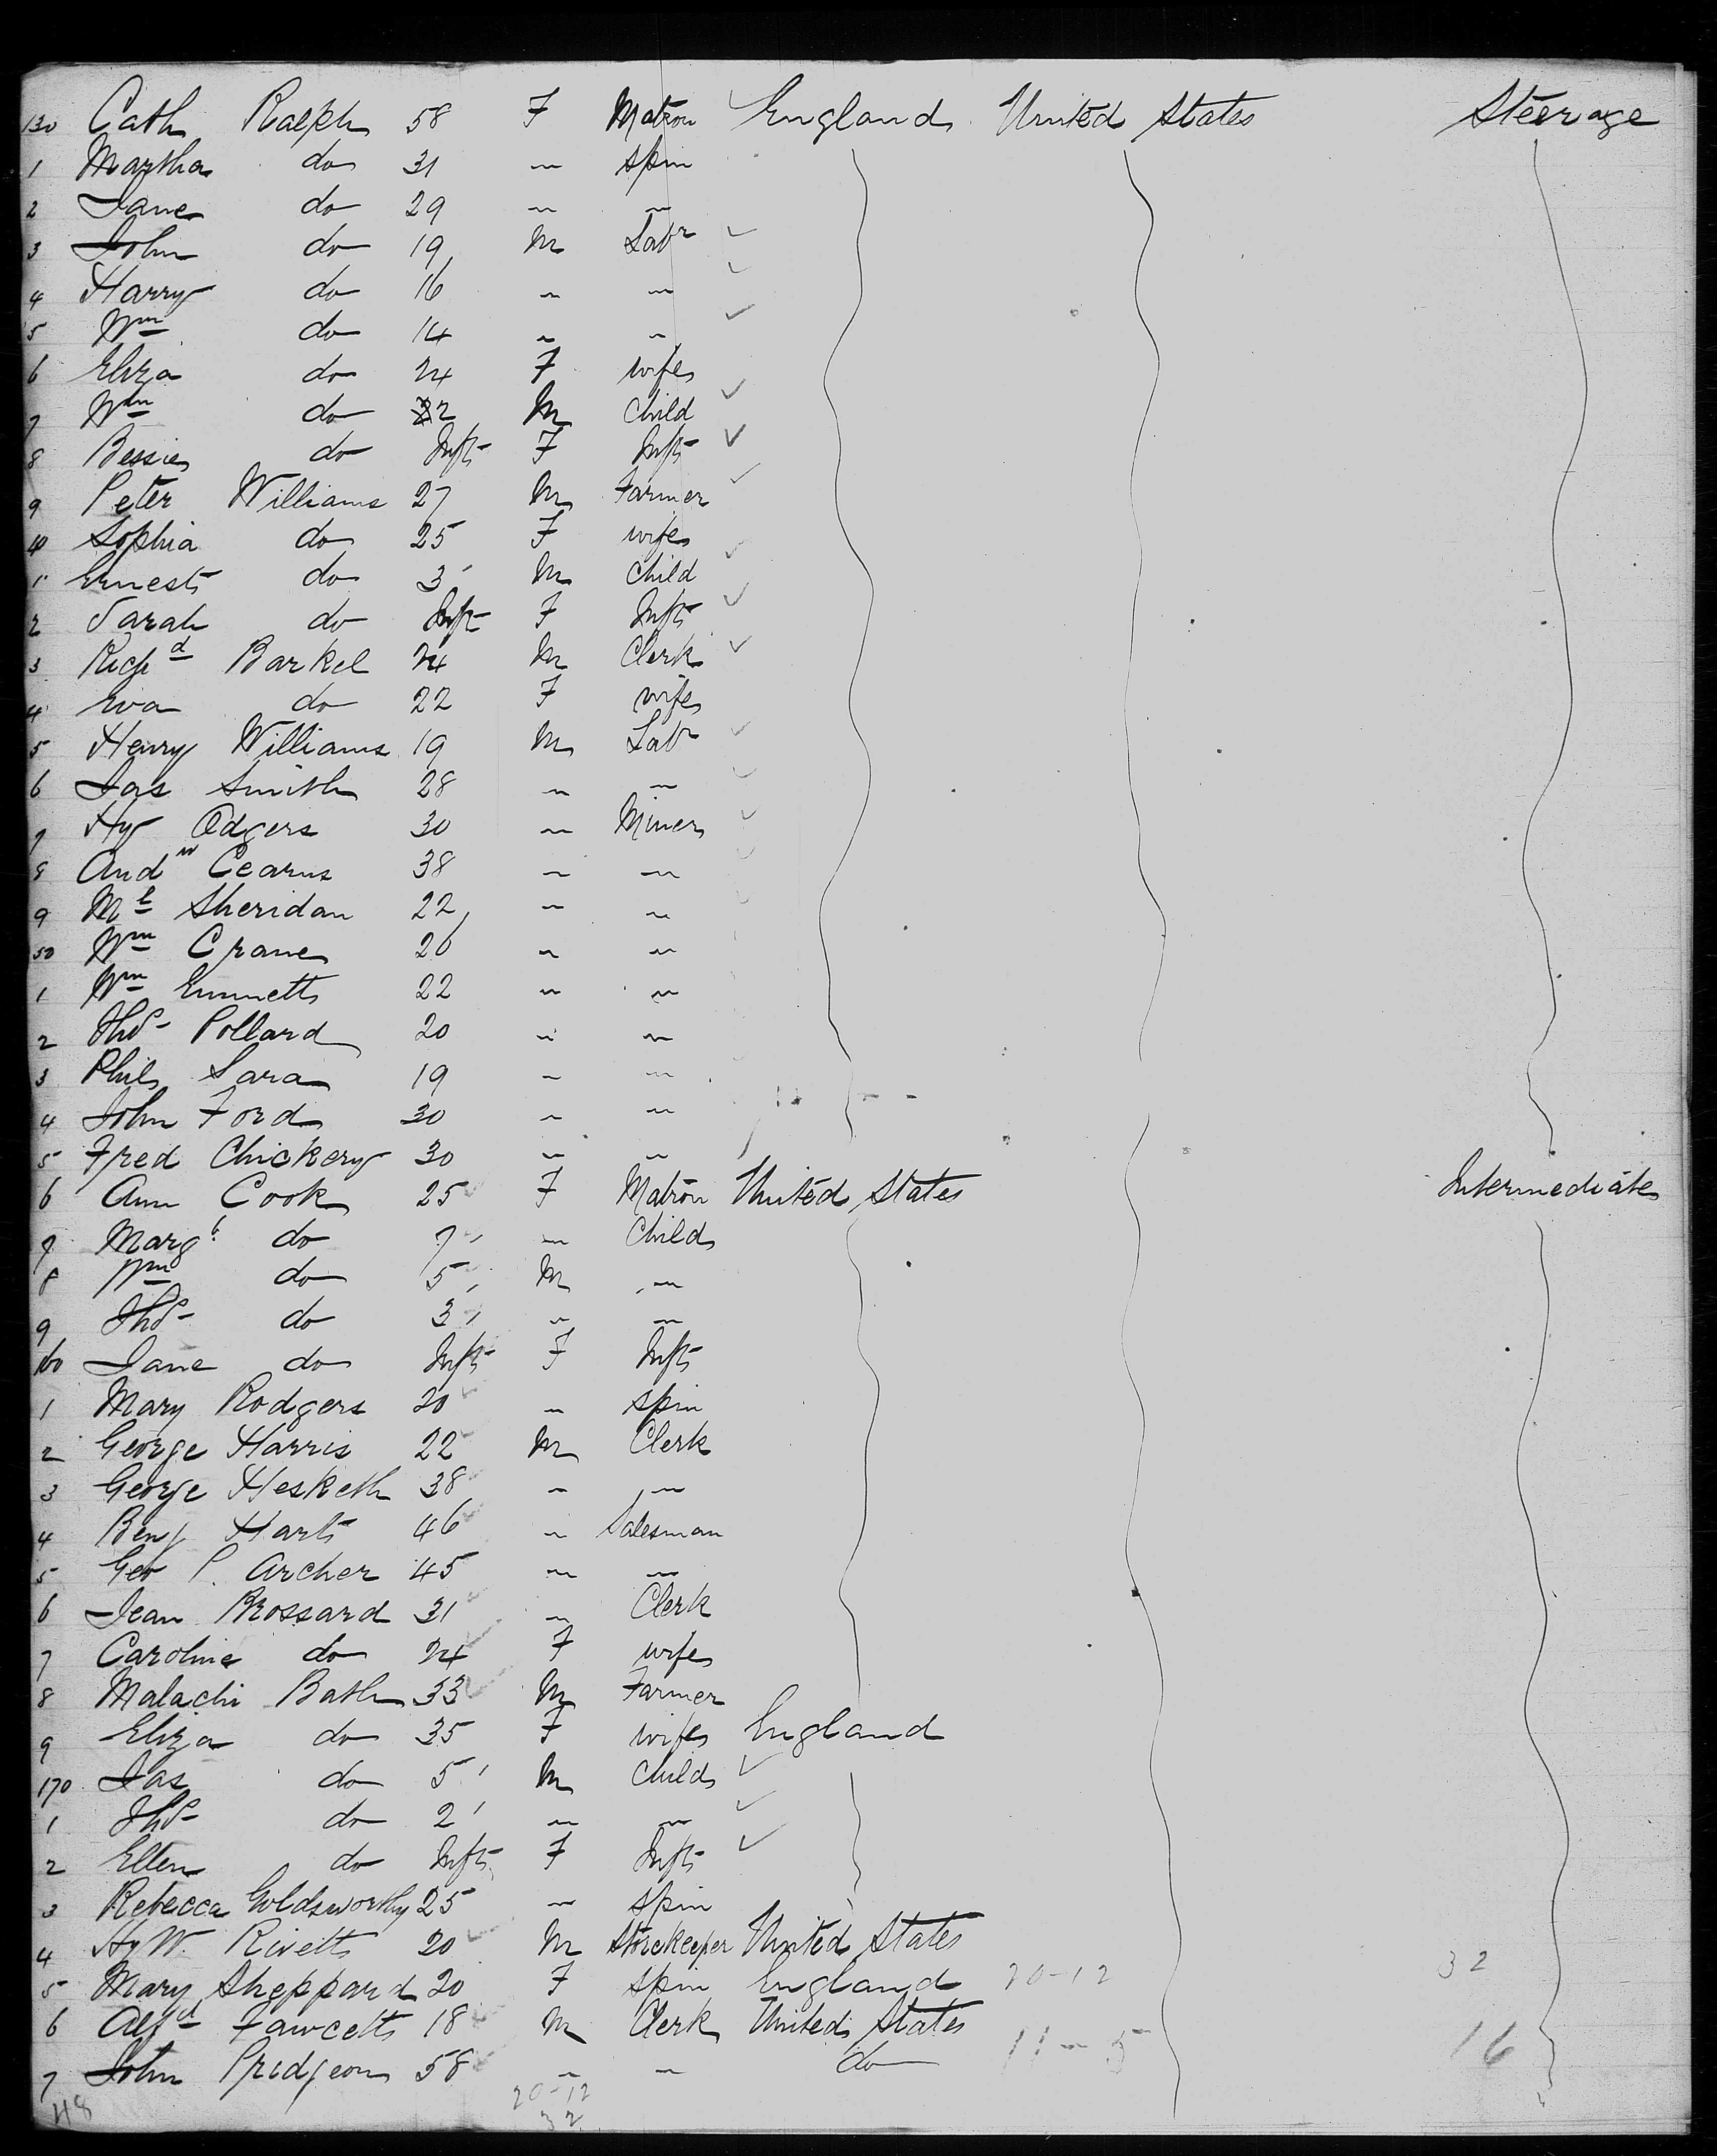 130 Cath Ralph 58 F Matron England United States Steerage
1 Martha do 31 " spin
2 Jane do 29 " "
3 John do 19 M Labr
4 Harry do 16 " "
5 Wm do 14 " "
6 Eliza do 24 F wife
7 Wm do 2 M Child
8 Bessie do Inft F Inft
9 Peter Williams 27 M Farmer
40 Sophia do 25 F wife
1 Ernest do 3 M Child
2 Sarah do Inft F Inft
3 Richd Barkel 24 M Clerk
4 Eva do 22 F wife
5 Henry Williams 19 M Labr
6 Jas Smith 28 " "
7 Hy Odgers 30 " Miner
8 Andw Cearns 38 " "
9 Ml Sheridan 22 " "
50 Wm Crane 26 " "
1 Wm Emmett 22 " "
2 Thos Pollard 20 " "
3 Phil Sara 19 " "
4 John Ford 30 " "
5 Fred Chickery 30 " "
6 Ann Cook 25 F Matron United States Intermediate
7 Margt do 7 " Child
8 Wm do 5 M "
9 Thos do 3 " "
160 Jane do Inft F Inft
1 Mary Rodgers 20 " spin
2 George Harris 22 M Clerk
3 George Hesketh 38 " "
4 Benj Hart 46 " Salesman
5 Geo P. Archer 45 " "
6 Jean Brossard 31 " Clerk
7 Caroline do 24 F wife
8 Malachi Bath 33 M Farmer
9 Eliza do 35 F wife England
170 Jas do 5 M Child
1 Thos do 2 " "
2 Ellen do Inft F Inft
3 Rebecca Goldsworthy 25 " spin
4 Hy W. Rivett 20 M Storekeeper United States
5 Mary Sheppard 20 F spin England 20-12 32
6 Alfd Fawcett 18 M Clerk United States
7 John Pridgeon 58 " " do 11-5 16
48 20-12
32